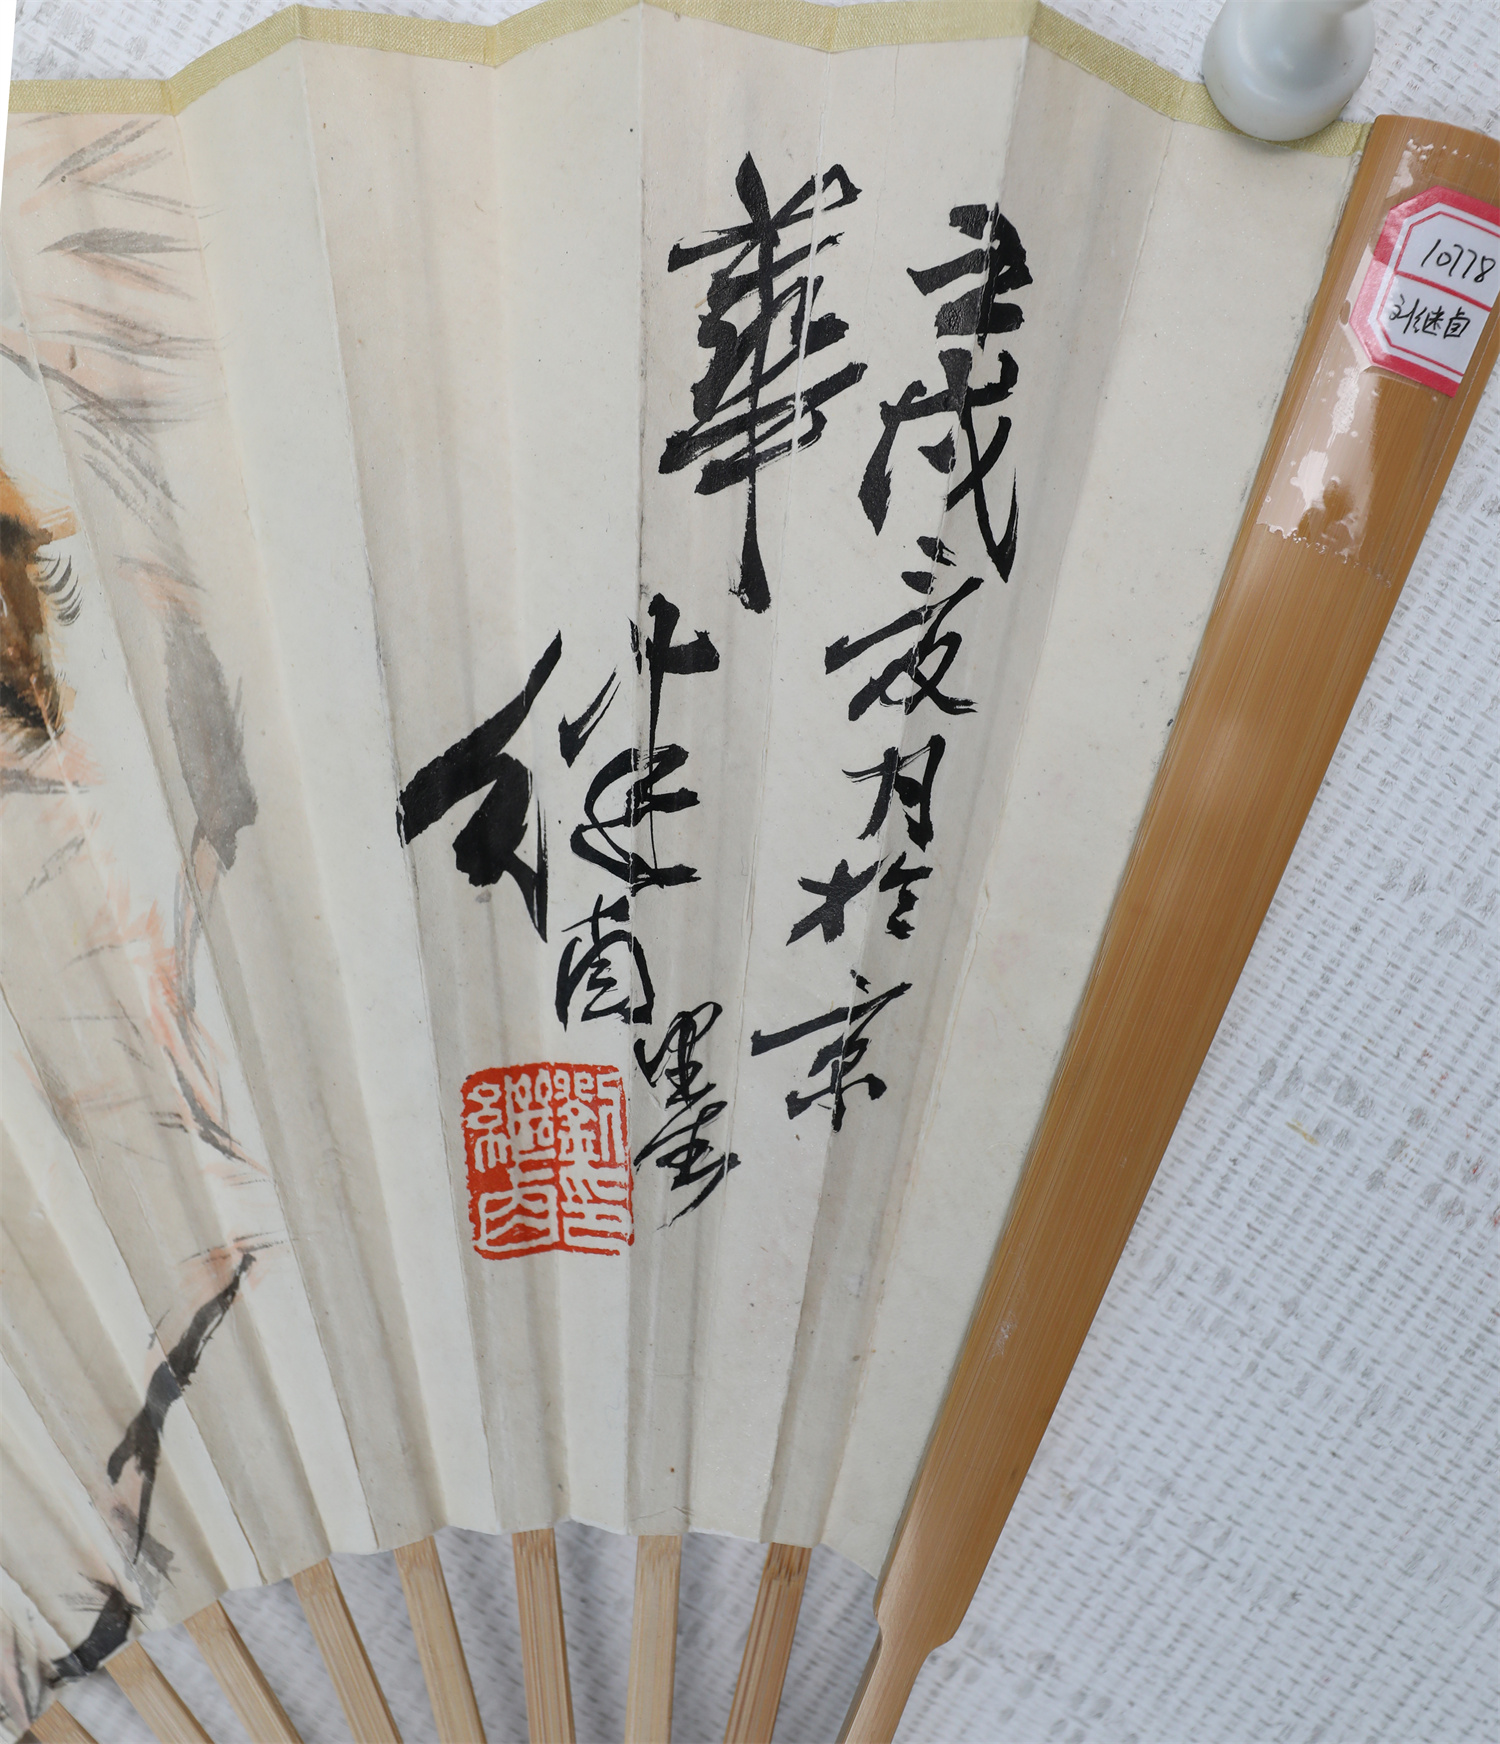 壬戌夏月於京
華
继卣墨
劉印
繼卣
10778
刘继卣